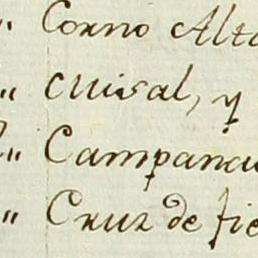 " Corno Alto
" Missal, y
" Campana
" Cruz de fie